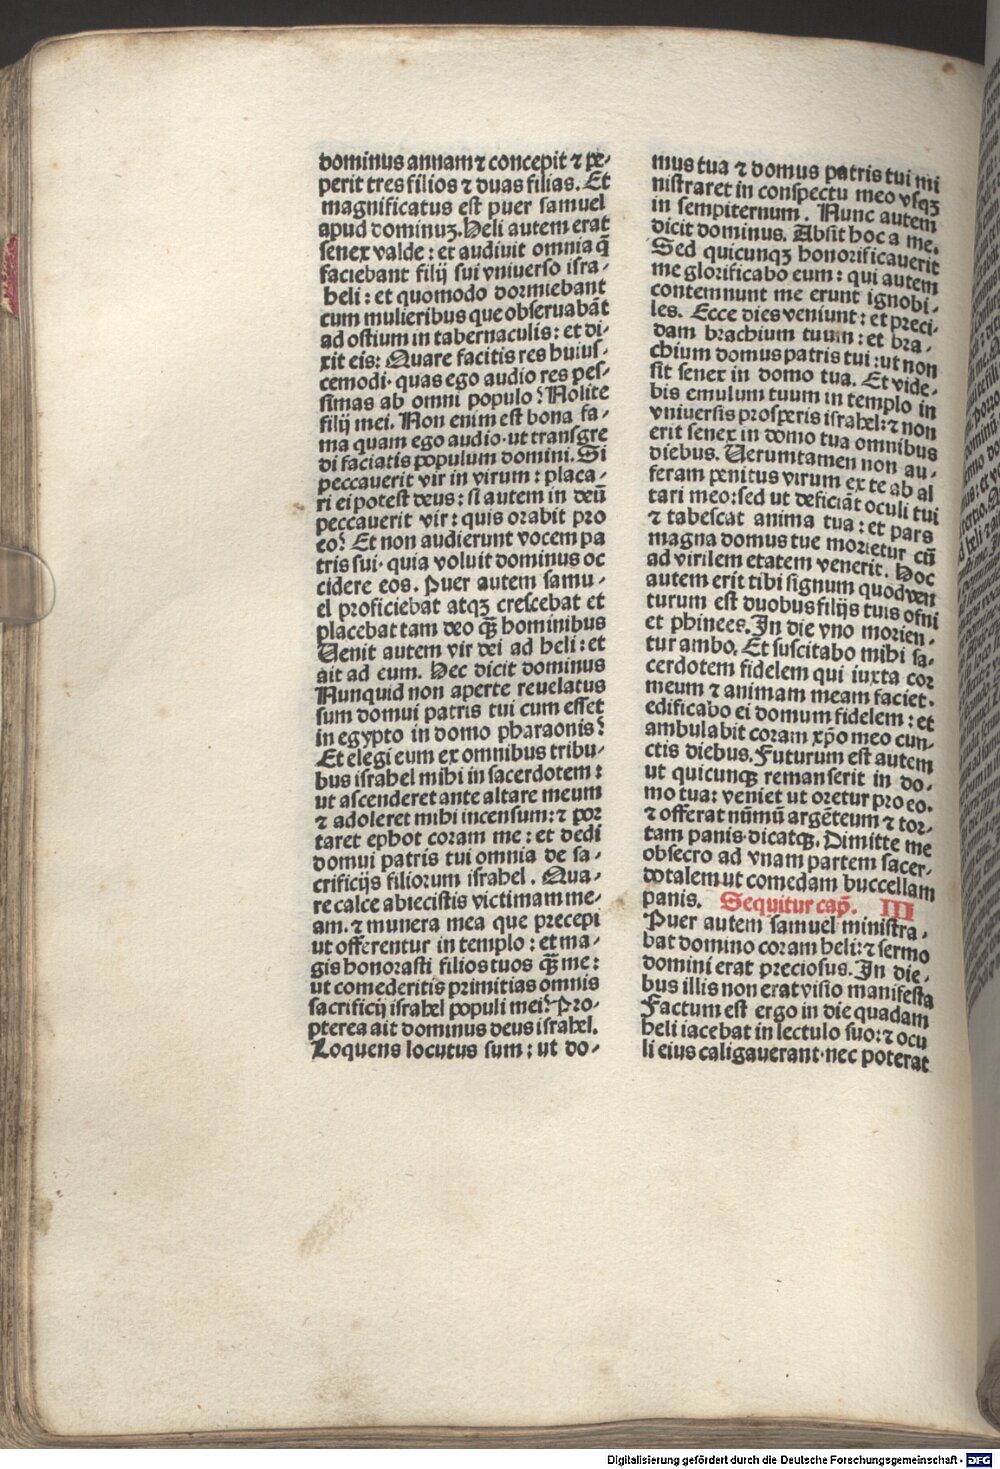 dominus annam ⁊ concepit ⁊ pe-
perit tres filios ⁊ duas filias. Et
magnificatus est puer samuel
apud dominuꝫ. Heli autem erat
senex valde : et audivit omnia q̄
faciebant filij sui vniuerso isra-
heli : et quomodo dormiebant
cum mulieribus que obseruabāt
ad ostium in tabernaculis : et di-
xit eis: Quare facitis res huius-
cemodi· quas ego audio res pes-
simas ab omni populo? Nolite
filij mei. Non enim est bona fa-
ma quam ego audio· ut transgre
di faciatis populum domini. Si
peccauerit vir in virum : placa-
ri ei potest deus : si autem in deū
peccauerit vir : quis orabit pro
eo? Et non audierunt vocem pa
tris sui· quia voluit dominus oc
cidere eos. Puer autem samu-
el proficiebat atqꝫ crescebat et
placebat tam deo qꝫ̄ hominibus
Uenit autem vir dei ad heli : et
ait ad eum. Hec dicit dominus
Nunquid non aperte reuelatus
sum domui patris tui cum esset
in egypto in domo pharaonis?
Et elegi eum ex omnibus tribu-
bus israhel mihi in sacerdotem :
ut ascenderet ante altare meum
⁊ adoleret mihi incensum: ⁊ por
taret ephot coram me : et dedi
domui patris tui omnia de sa-
crificijs filiorum israhel . Qua-
re calce abiecistis victimam me-
am. ⁊ munera mea que precepi
ut offerentur in templo : et ma-
gis honorasti filios tuos qꝫ̄ me :
ut comederitis primitias omnis
sacrificij israhel populi mei? Pro-
pterea ait dominus deus israhel.
Loquens locutus sum : ut do-
mus tua ⁊ domus patris tui mi
nistraret in conspectu meo vsqꝫ
in sempiternum . Nunc autem
dicit dominus. Absit hoc a me.
Sed quicunqꝫ honorificauerit
me glorificabo eum : qui autem
contemnunt me erunt ignobi-
les. Ecce dies veniunt : et preci-
dam brachium tuum : et bra-
chium domus patris tui : ut non
sit senex in domo tua. Et vide-
bis emulum tuum in templo in
vniuersis prosperis israhel: ⁊ non
erit senex in domo tua omnibus
diebus. Uerumtamen non au-
feram penitus virum ex te ab al
tari meo: sed ut deficiāt oculi tui
⁊ tabescat anima tua : et pars
magna domus tue morietur cū
ad virilem etatem venerit. Hoc
autem erit tibi signum quod ven
turum est duobus filijs tuis ofni
et phinees. In die vno morien-
tur ambo. Et suscitabo mihi sa-
cerdotem fidelem qui iuxta cor
meum ⁊ animam meam faciet.
edificabo ei domum fidelem : et
ambulabit coram xp̄o meo cun-
ctis diebus. Futurum est autem
ut quicunqꝫ remanserit in do-
mo tua: veniet ut oretur pro eo.
⁊ offerat nūmū argēteum ⁊ tor-
tam panis· dicatqꝫ. Dimitte me
obsecro ad vnam partem sacer-
dotalem ut comedam buccellam
panis. Sequitur cap̄. III
Puer autem samuel ministra-
bat domino coram heli: ⁊ sermo
domini erat preciosus. In die-
bus illis non erat visio manifesta
Factum est ergo in die quadam
heli iacebat in lectulo suo: ⁊ ocu
li eius caligauerant· nec poterat
Digitalisierung gefördert durch die Deutsche Forschungsgemeinschaft - DFG